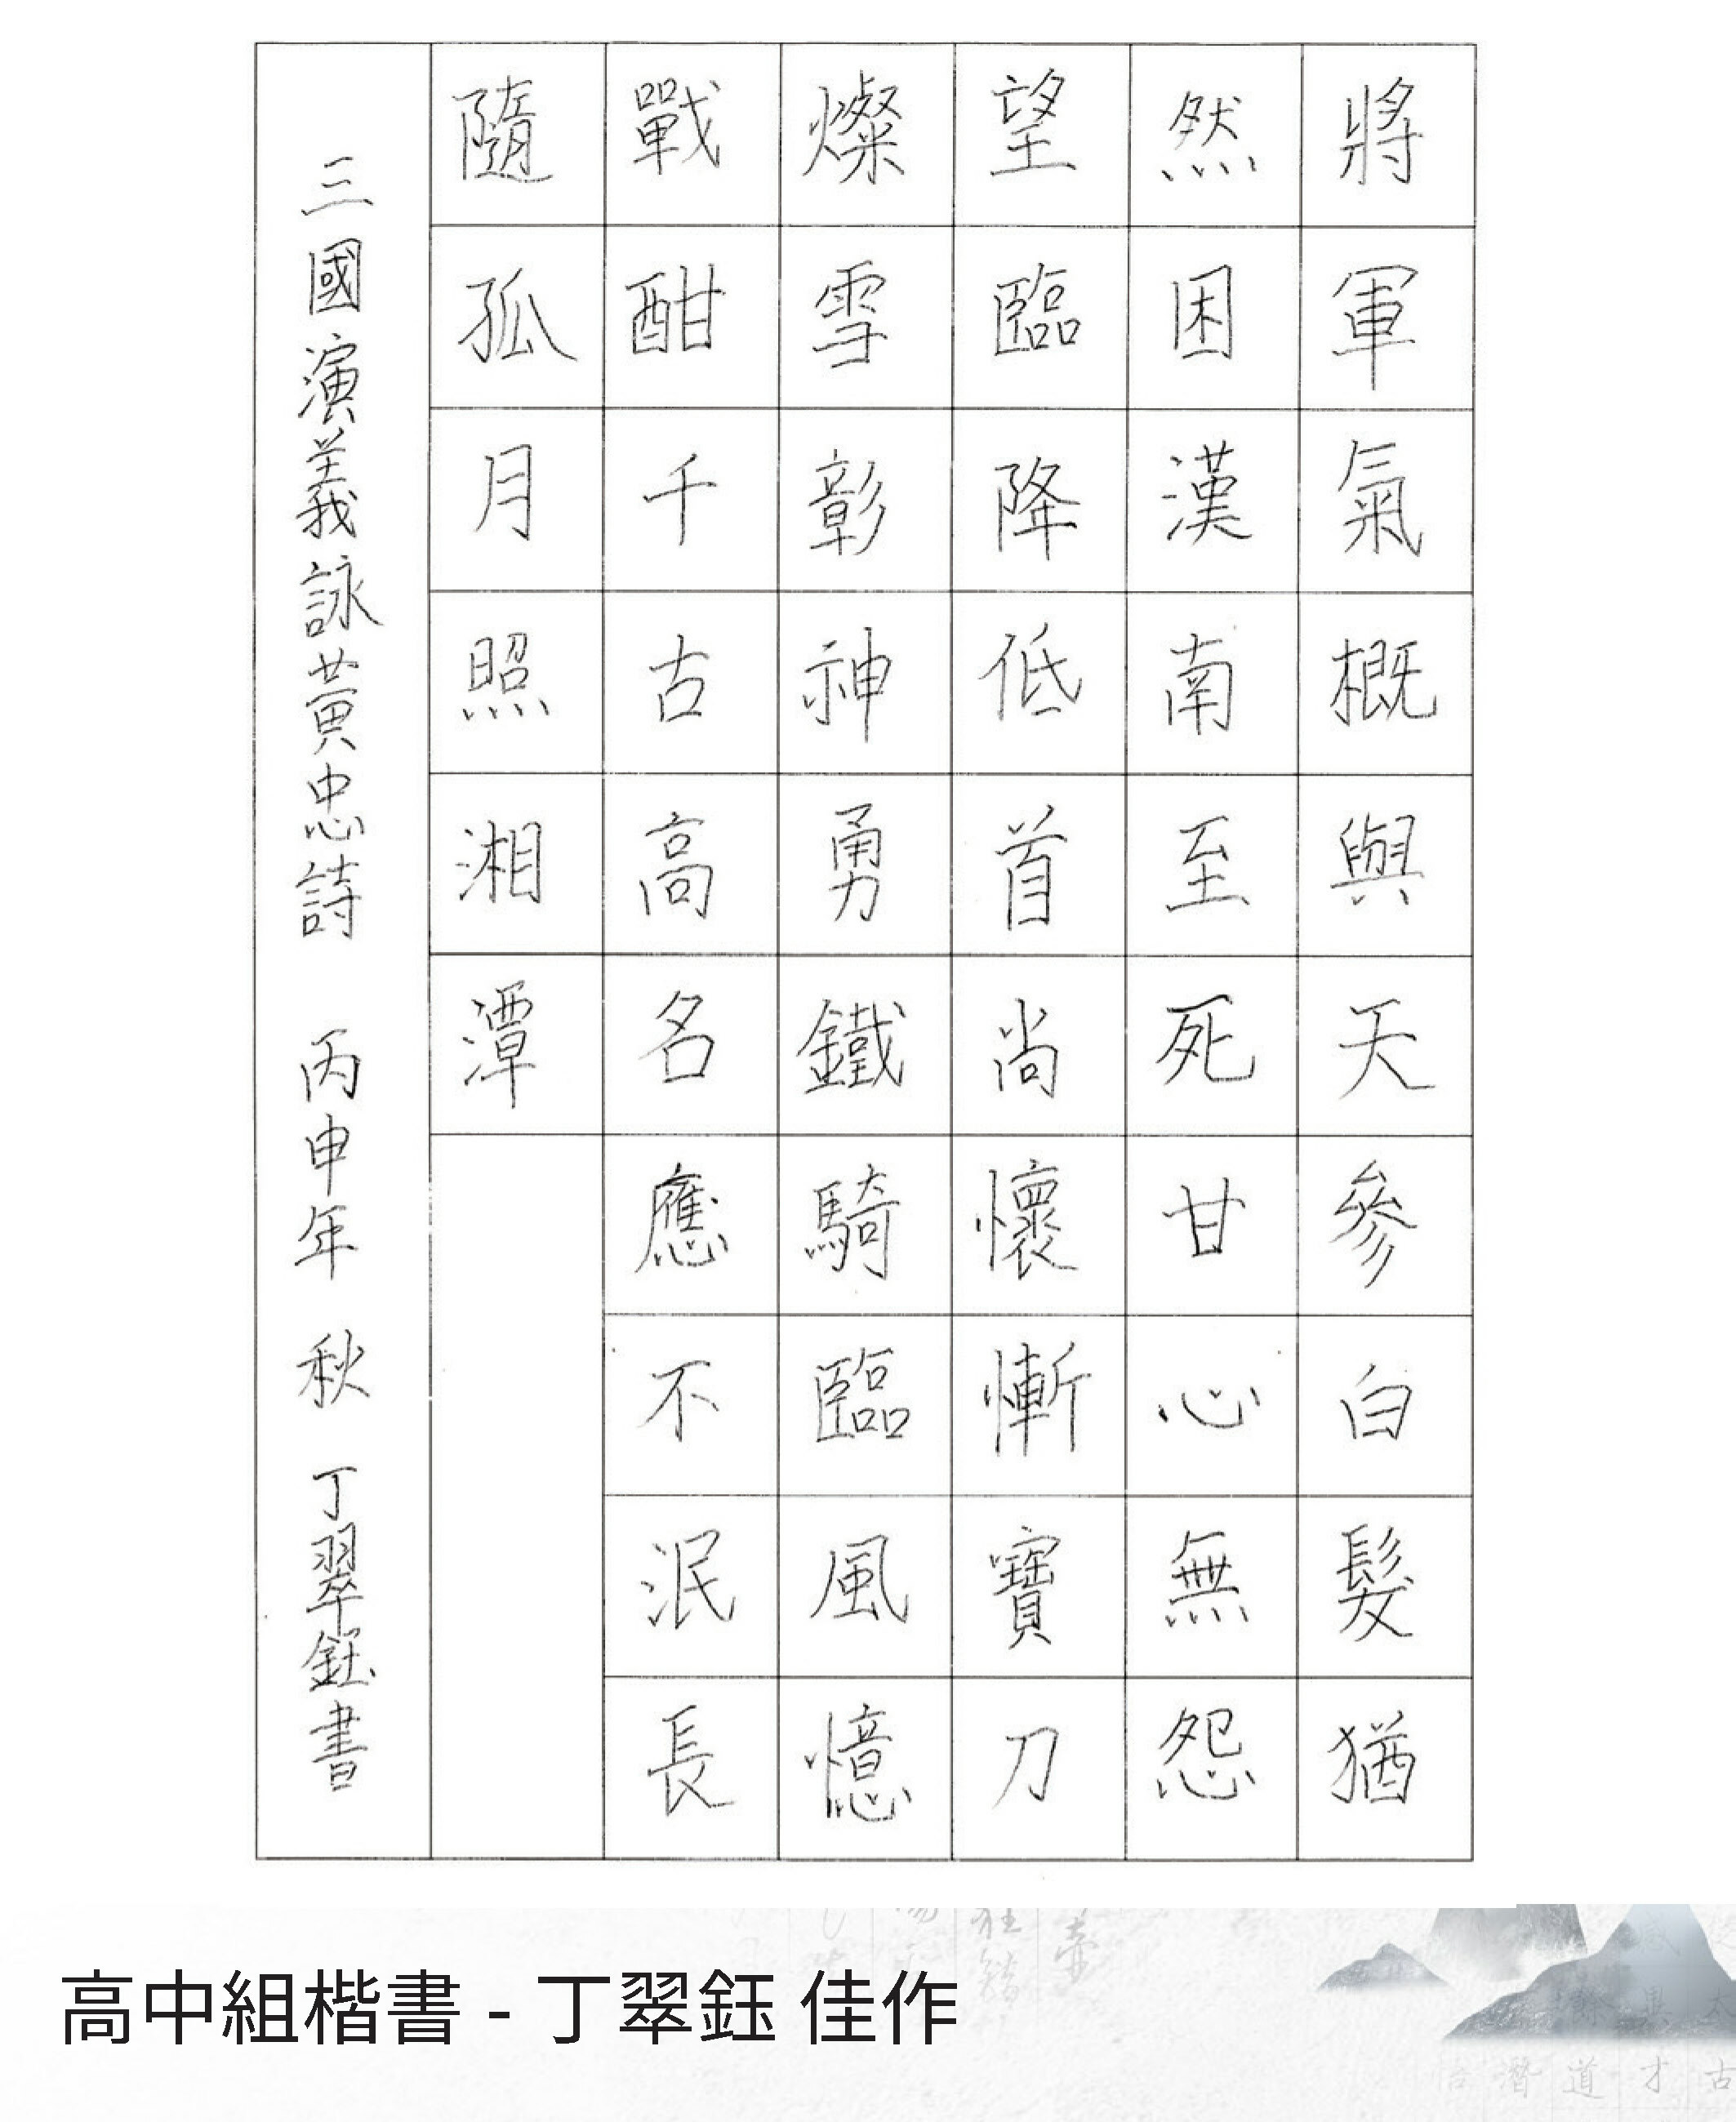 將軍氣概與天參白髮猶
然困漢南至死甘心無怨
望臨降低首尚懷慚寶刀
燦雪彰神勇鐵騎臨風憶
戰酣千古高名應不泯長
隨孤月照湘潭
三國演義詠黃忠詩 丙申年 秋 丁翠鈺書
高中組楷書 - 丁翠鈺 佳作